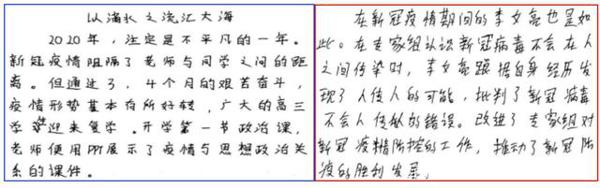 以滴水之浇汇大海
2020年，注定是不平凡的一年。
新冠疫情阻隔了老师与同学之间的距
离。但通过了，4个月的艰苦奋斗，
疫情形势基本有所好转，广大的高三
学迎来复学。开学第一节政治课，
老师便用PPT展示了疫情与思想政治关
系的课件。
在新冠疫情期间的李文亮也是如
此。在专家组认识新冠病毒不会在人
之间传染时，李文亮跟据自身经历发
现了人传人的可能，批判了新冠病毒
不会人传的错误。改进了专家组对
新冠疫情防控的工作，推动了新冠防
疫的胜利发展。